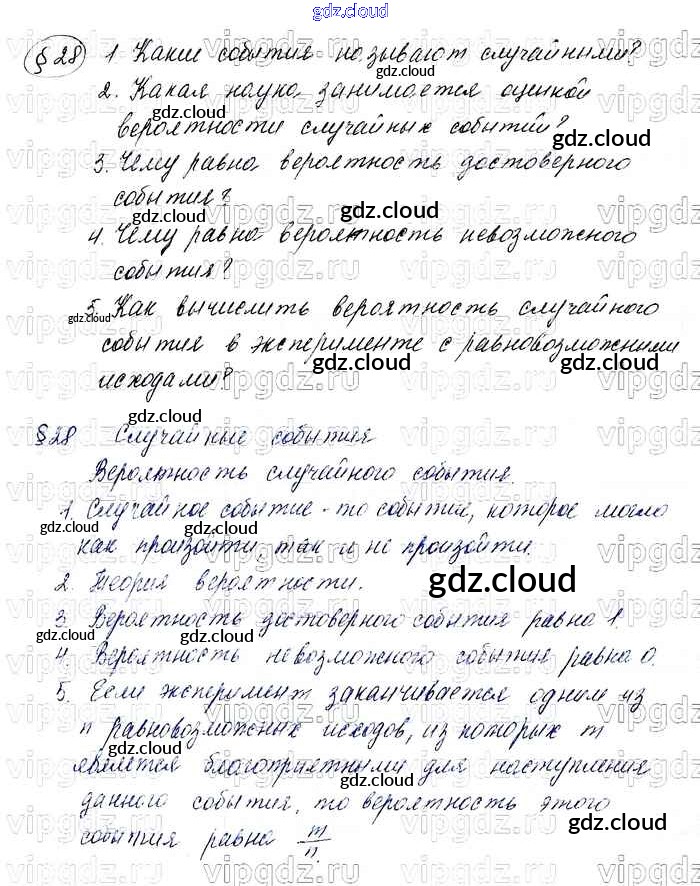 gdz.cloud
§ 28 1 Какие события называют случайными?
2. Какая наука занимается оценкой
вероятности случайных событий?
3. Чему равна вероятность достоверного
события?
4. Чему равна вероятность невозможного
события?
5. Как вычислить вероятность случайного
события в эксперименте с равновозможными
исходами?
§ 28 Случайные события
Вероятность случайного события.
1. Случайное событие - то событие, которое могло
как произойти, так и не произойти.
2. Теория вероятности.
3. Вероятность достоверного события равна 1
4. Вероятность невозможного события равна 0.
5. Если эксперимент заканчивается одним из
n равновозможных исходов, из которых m
является благоприятными для наступления
данного события, то вероятность этого
события равна m/n.